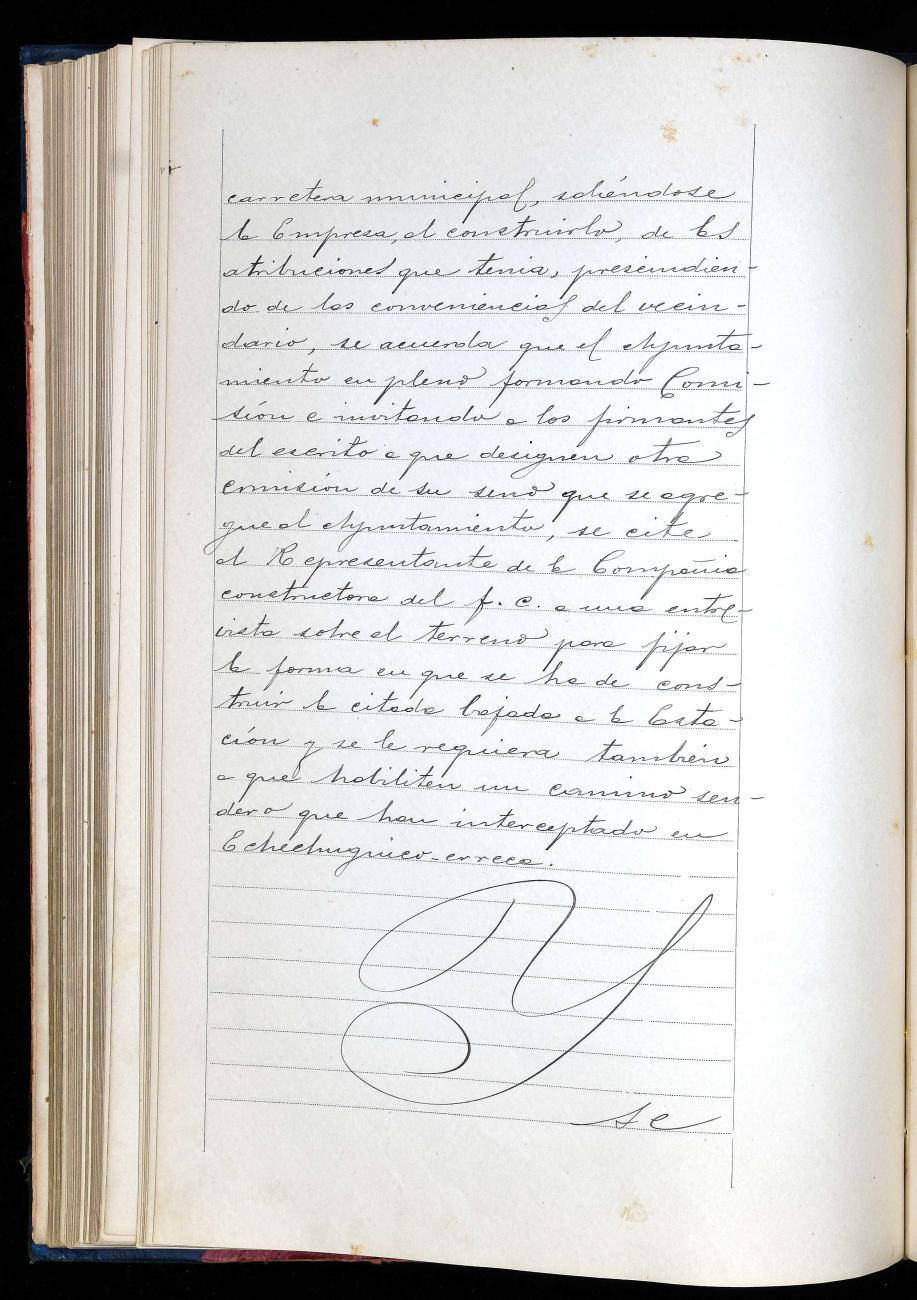 carretera municipal, saliéndose
la Empresa, al construirlo, de las
atribuciones que tenia, prescindien-
do de las conveniencias del vecin-
dario, se acuerda que el Ayunta-
miento en pleno formando Comi-
sión e invitando a los firmantes
del escrito a que designen otra
comisión de su seno que se agre-
gue al Ayuntamiento, se cite
al Representante de la Compañia
constructora del f. c. a una entre-
vista sobre el terreno para fijar
la forma en que se ha de cons-
truir la citada bajada a la Esta-
ción y se le requiera también
a que habiliten un camino sen-
dero que han interceptado en
Echechuguico-erreca.
Y
se